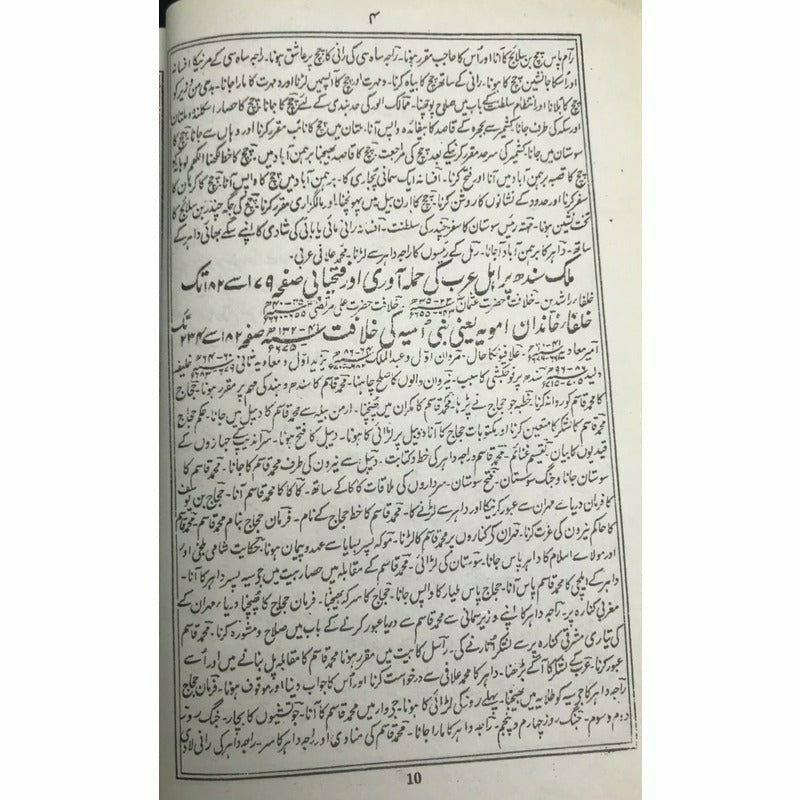 ۴
رام پاس چچ بن سلائج کا آنا اور اُس کا حاجب مقرر ہونا۔ راجہ ساہ سی کی رانی کا چچ پر عاشق ہونا۔ راجہ ساہ سی کے مرنیکا افسانہ
اور اُسکا جانشین چچ کا ہونا۔ رانی کے ساتھ چچ کا بیاہ کرنا۔ دہرت اور چچ کا آپسمیں لڑنا اور دہرت کا مارا جانا۔ بدھی من وزیر کو
چچ کا بلانا اور انتظام سلطنت کے باب میں صلاح پوچھنا۔ ممالک اور کی حد بندی کے لئے چچ کا جانا۔ چچ کا حصار اسکلندہ و ملتان
اور سکہ کی طرف جانا۔ کشمیر سے بجہرہ کے قاصد کا بیفائدہ واپس آنا۔ ملتان میں چچ کا نائب مقرر کرنا اور وہاں سے جانا۔ چچ کا
سوستان میں جانا۔ کشمیر کی سرحد مقرر کرنیکے بعد چچ کی مراجعت۔ چچ کا قاصد بھیجنا برہمن آباد میں۔ چچ کا خط لکھنا اکھم لوہانہ کو
چچ کا قصبہ برہمن آباد میں آنا اور فتح کرنا۔ افسانہ ایک سمانی پجاری کا۔ برہمن آباد میں چچ کا واپس آنا۔ چچ کا کرمان کا
سفر کرنا اور حدود کے نشانوں کا روشن کرنا۔ چچ کا ارمن بیل میں پہونچنا اور مالگزاری مقرر کرنا۔ چچ کی جگہ چندر بن سلائج کا
تخت نشین ہونا۔ مہتہ رئیس سوستان کا سفر۔ چندر کی سلطنت۔ افسانہ رانی مائی یا بائی کی شادی کا اپنے سگے بھائی داہر کے
ساتھ۔ داہر کا برہمن آباد آجانا۔ رمل کے رئیسوں کا راجہ داہر سے لڑنا۔ محمد علافی عربی۔
ملک سندھ پر اہل عرب کی حملہ آوری اور فتحیابی صفحہ ۱۷۹ سے ۱۸۲ تک
خلفاء راشدین۔ خلافت حضرت عثمان ۔ خلافت حضرت علی مرتضی
خلفاء خاندان امویہ یعنی بنی اُمیہ کی خلافت صفحہ ۱۸۲ سے ۲۳۴ تک
امیر معاویہ علافیونکا حال۔ مروان اول و عبدالملک یزید اول و معاویہ ثانی خلیفہ
ولید سندھ پر لوٹ کشی کا سبب۔ نیرون والوں کا صلح چاہنا۔ محمد قاسم کا سندھ و ہند کی مہم پر مقرر ہونا۔ حجاج
کا محمد قاسم کو روانہ کرنا۔ خطبہ جو حجاج نے پڑھا۔ محمد قاسم کا مکران میں پہنچنا۔ ارمن بیلہ سے محمد قاسم کا دیبل میں جانا۔ حکم حجاج
محمد قاسم کا لشکر کا متعین کرنا اور مکتوبات حجاج کا آنا۔ دیبل پر لڑائی کا ہونا۔ دیبل کا فتح ہونا۔ سراندیپ کے جہازوں کے
قیدیوں کا بیان۔ تقسیم غنائم۔ محمد قاسم و راجہ داہر کی خط و کتابت۔ دیبل سے نیرون کی طرف محمد قاسم کا جانا۔ محمد قاسم کا
سوستان جانا و جنگ سوستان۔ فتح سوستان۔ سرداروں کی ملاقات کاکا کے ساتھ۔ کاکا کا محمد قاسم آنا۔ حجاج بن یوسف
کا فرمان دریائے مہران سے عبور کرنیکا اور داہر سے لڑنے کا۔ محمد قاسم کا خط حجاج کے نام۔ فرمان حجاج بنام محمد قاسم۔ محمد قاسم
کا حاکم نیرون کی عزت کرنا۔ مہران کی کناروں پر محمد قاسم کا لڑنا۔ موکہ پسر بسایا سے عہد و پیمان ہونا۔ حکایت شامی ایلچی اور
اور مولائے اسلام کا داہر پاس جانا۔ سوستان کی لڑائی۔ محمد قاسم کے مقابلہ میں حصار بیت میں جیسیہ پسر داہر کا آنا۔
داہر کے ایلچی کا محمد قاسم پاس آنا۔ حجاج پاس طیار کا واپس جانا۔ حجاج کا سرکہ بھیجنا۔ فرمان حجاج کا پہنچنا دریائے مہران کے
مغربی کنارہ پر۔ راجہ داہر کا اپنے وزیر سمانی سے محمد قاسم سے دریا عبور کرنے کے باب میں صلاح و مشورہ کرنا۔ محمد قاسم
کی تیاری مشرقی کنارہ پر سے لشکر اُتارنے کی۔ راسل کا بیت میں مقرر ہونا محمد قاسم کا مقابلہ پل بنانے میں اور اُسے
عبور کرنا۔ عرب کے لشکر کا آگے بڑھنا۔ داہر کا محمد علافی سے درخواست کرنا اور اُس کا جواب دینا اور موقوف ہونا۔ فرمان حجاج
راجہ داہر کا جیسیہ کو طلایہ میں بھیجنا۔ پہلے روز کی لڑائی کا ہونا۔ جیور میں محمد قاسم کا آنا۔ جوتشیوں کا بچار۔ جنگ روز
دوم و سوم۔ جنگ روز چہارم و پنجم۔ راجہ داہر کا مارا جانا۔ محمد قاسم کی منادی اور راجہ داہر کا سر۔ راجہ داہر کی رانی لادی
10